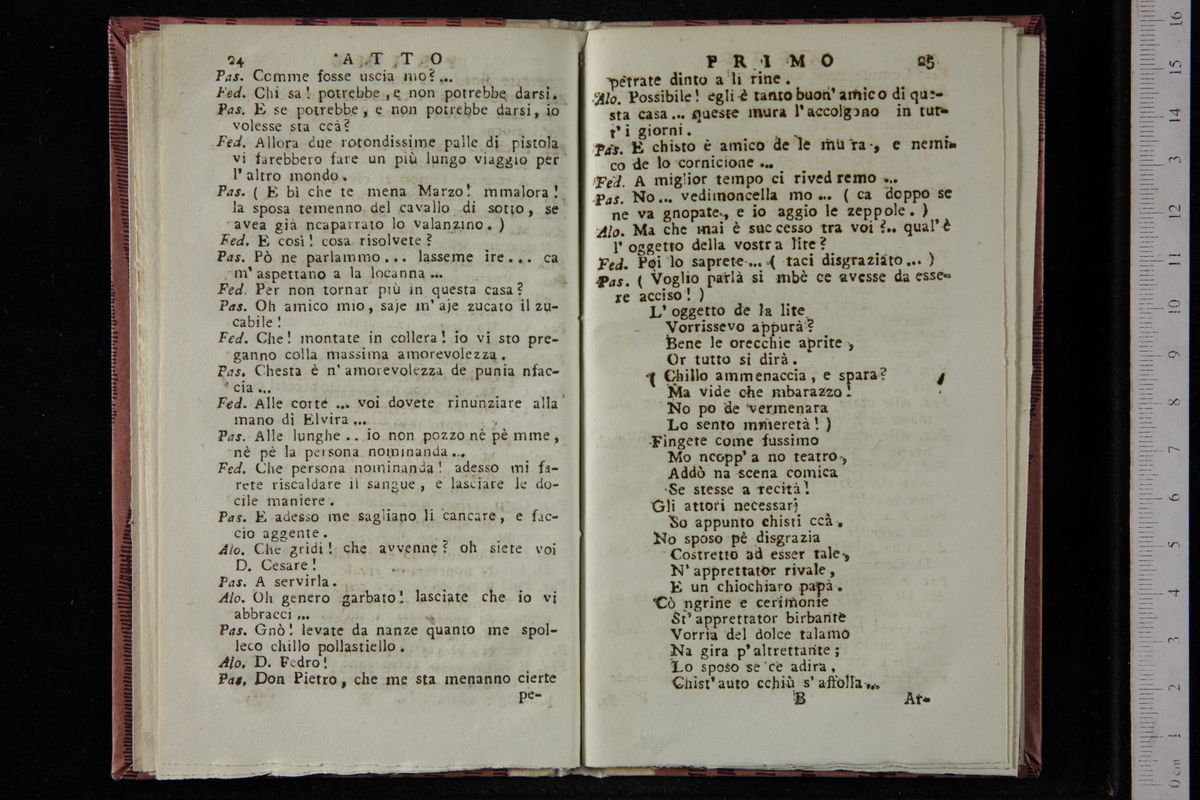 24 A T T O
Pas. Comme fosse uscia mo? ...
Fed. Chi sa! potrebbe, e non potrebbe darsi.
Pas. E se potrebbe, e non potrebbe darsi, io
volesse sta ccà?
Fed. Allora due rotondissime palle di pistola
vi farebbero fare un più lungo viaggio per
l'altro mondo.
Pas. ( E bì che te mena Marzo! mmalora!
la sposa temenno del cavallo di sotto, se
avea già ncaparrato lo valanzino. )
Fed. E così! cosa risolvete?
Pas. Pò ne parlammo... lasseme ire... ca
m'aspettano a la locanna ...
Fed. Per non tornar più in questa casa?
Pas. Oh amico mio, saje m'aje zucato il zu-
cabile!
Fed. Che! montate in collera! io vi sto pre-
ganno colla massima amorevolezza.
Pas. Chesta è n'amorevolezza de punia nfac-
cia ...
Fed. Alle corte ... voi dovete rinunziare alla
mano di Elvira ...
Pas. Alle lunghe .. io non pozzo nè pè mme,
nè pè la persona nominanda ...
Fed. Che persona nominanda! adesso mi fa-
rete riscaldare il sangue, e lasciare le do-
cile maniere.
Pas. E adesso me sagliano li cancare, e fac-
cio aggente.
Alo. Che gridi! che avvenne? oh siete voi
D. Cesare!
Pas. A servirla.
Alo. Oh genero garbato! lasciate che io vi
abbracci ...
Pas. Gnò! levate da nanze quanto me spol-
leco chillo pollastiello.
Alo. D. Fedro!
Pas. Don Pietro, che me sta menanno cierte
pe-
P R I M O 25
petrate dinto a li rine.
Alo. Possibile! egli è tanto buon'amico di que-
sta casa ... queste mura l'accolgono in tut-
t'i giorni.
Pas. E chisto è amico de le mura, e nemi-
co de lo cornicione ...
Fed. A miglior tempo ci rivedremo ...
Pas. No... vedimoncella mo ... ( ca doppo se
ne va gnopate, e io aggio le zeppole. )
Alo. Ma che mai è successo tra voi?.. qual'è
l'oggetto della vostra lite?
Fed. Poi lo saprete ... ( taci disgraziato... )
Pas. ( Voglio parlà si mbè ce avesse da esse-
re acciso! )
L'oggetto de la lite
Vorrissevo appurà?
Bene le orecchie aprite,
Or tutto si dirà.
( Chillo ammenaccia, e spara?
Ma vide che mbarazzo!
No po de vermenara
Lo sento mmeretà! )
Fingete come fussimo
Mo ncopp'a no teatro,
Addò na scena comica
Se stesse a recità!
Gli attori necessarj
So appunto chisti ccà.
No sposo pè disgrazia
Costretto ad esser tale,
N'apprettator rivale,
E un chiochiaro papà.
Cò ngrine e cerimonie
St'apprettator birbante
Vorria del dolce talamo
Na gira p'altrettante;
Lo sposo se ce adira,
Chist'auto cchiù s'affolla ...
B At-